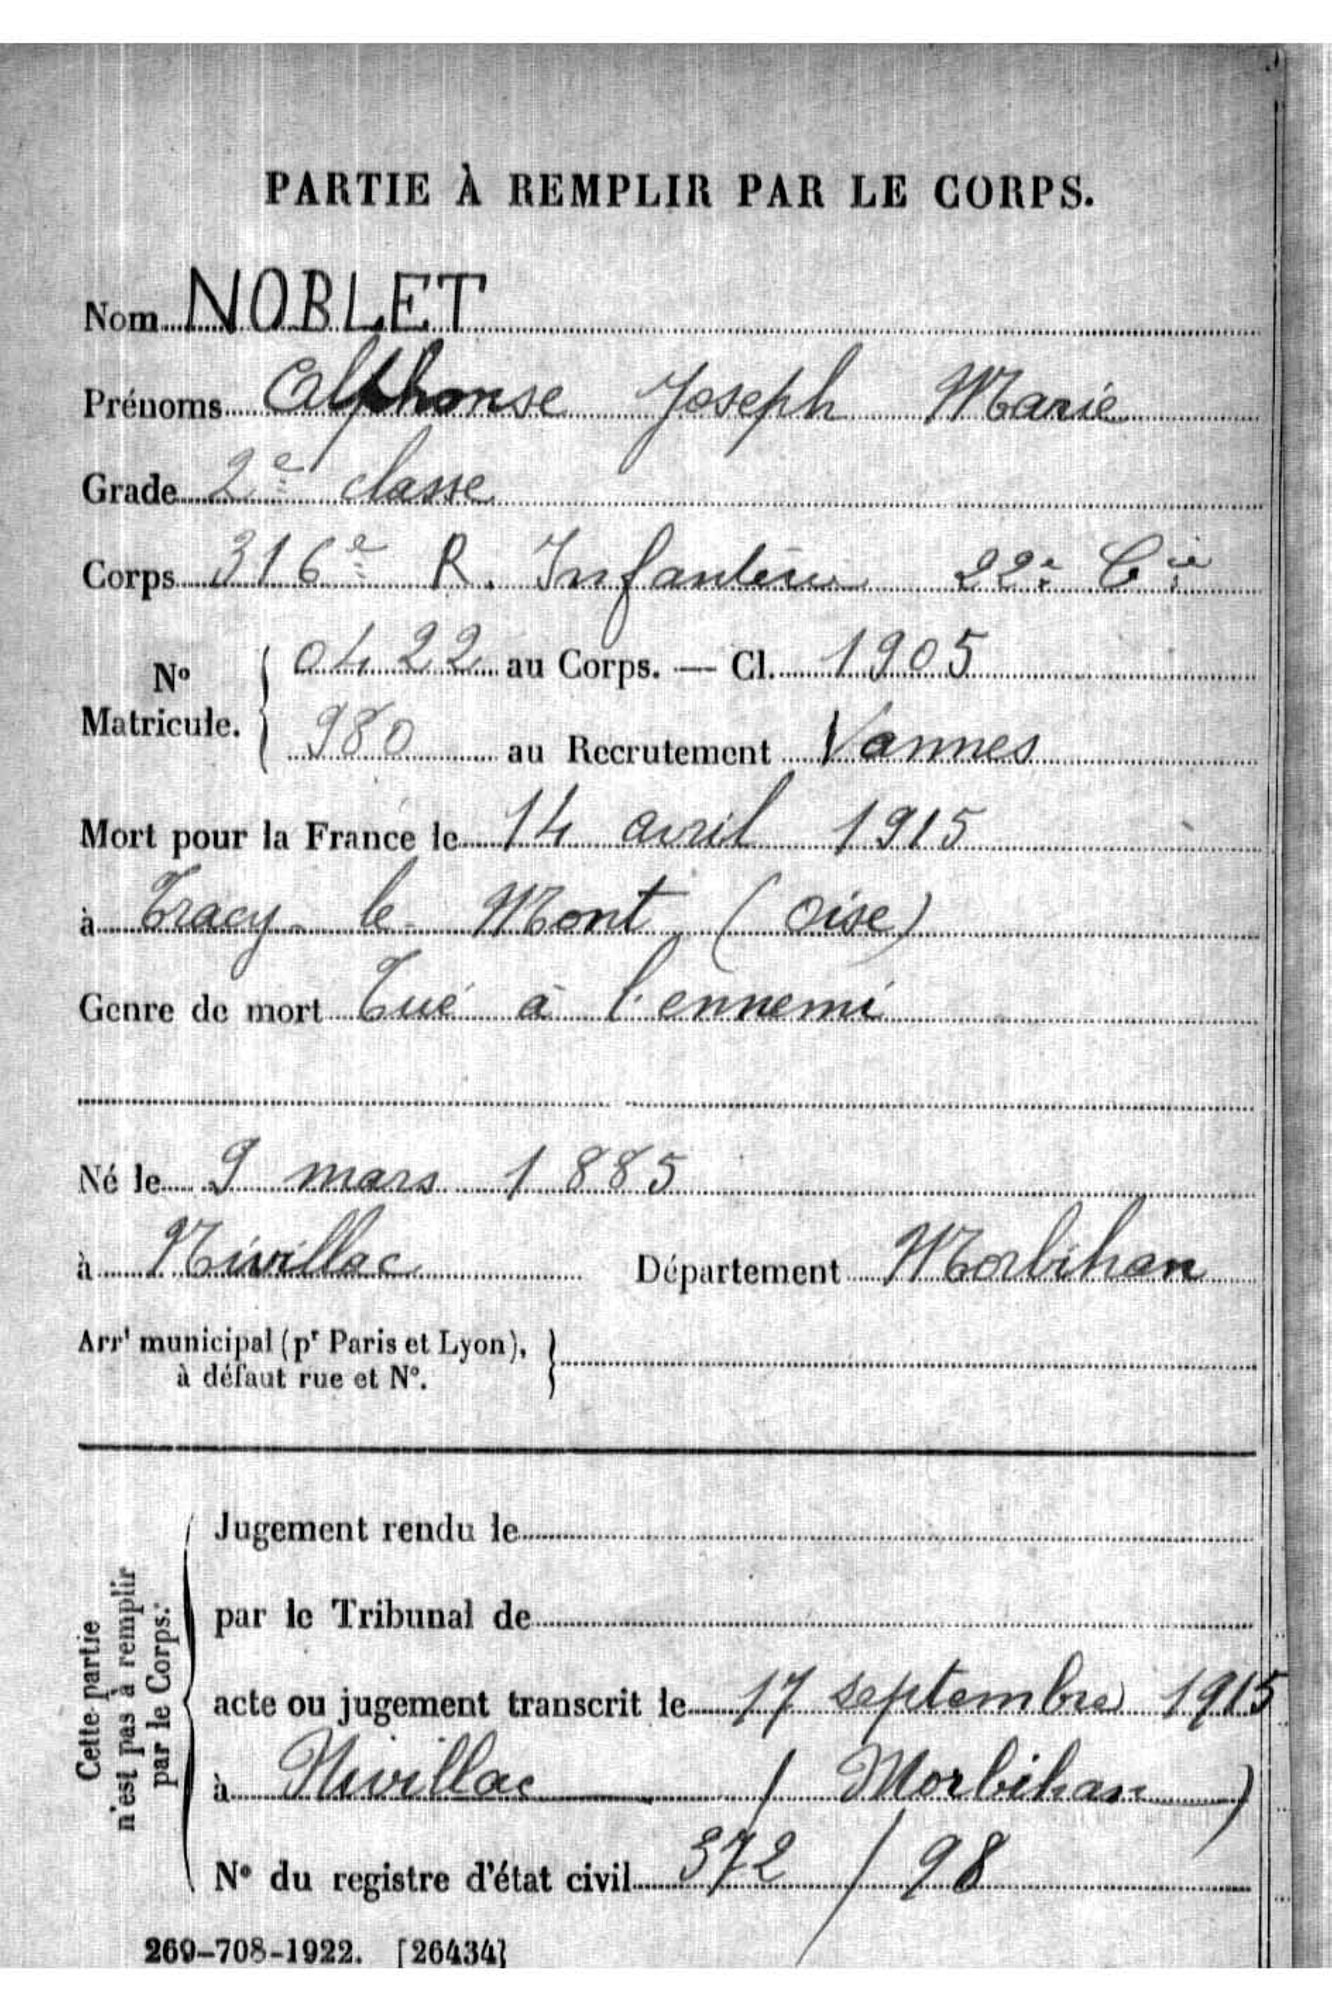 PARTIE À REMPLIR PAR LE CORPS.
Nom NOBLET
Prénoms Alphonse Joseph Marie
Grade 2e classe
Corps 316e R. Infanterie 22e Cie
No Matricule. 0422 au Corps. — Cl. 1905
980 au Recrutement Vannes
Mort pour la France le 14 avril 1915
à Tracy-le-Mont (Oise)
Genre de mort Tué à l'ennemi
Né le 9 mars 1885
à Nivillac Département Morbihan
Arrt municipal (pr Paris et Lyon),
à défaut rue et No.
Cette partie
n'est pas à remplir
par le Corps.
Jugement rendu le
par le Tribunal de
acte ou jugement transcrit le 17 septembre 1915
à Nivillac (Morbihan)
No du registre d'état civil 372 / 98
269-708-1922. [26434]